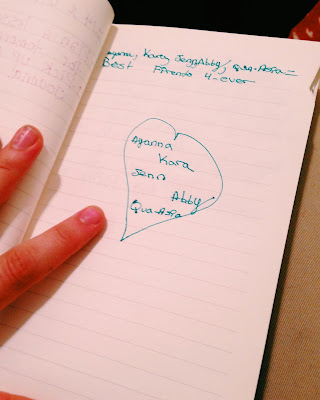 Ayanna, Kara, Jenn, Abby, Qua-Asia =
Best Friends 4-ever
Ayanna
Kara
Jenn
Abby
Qua-Asia